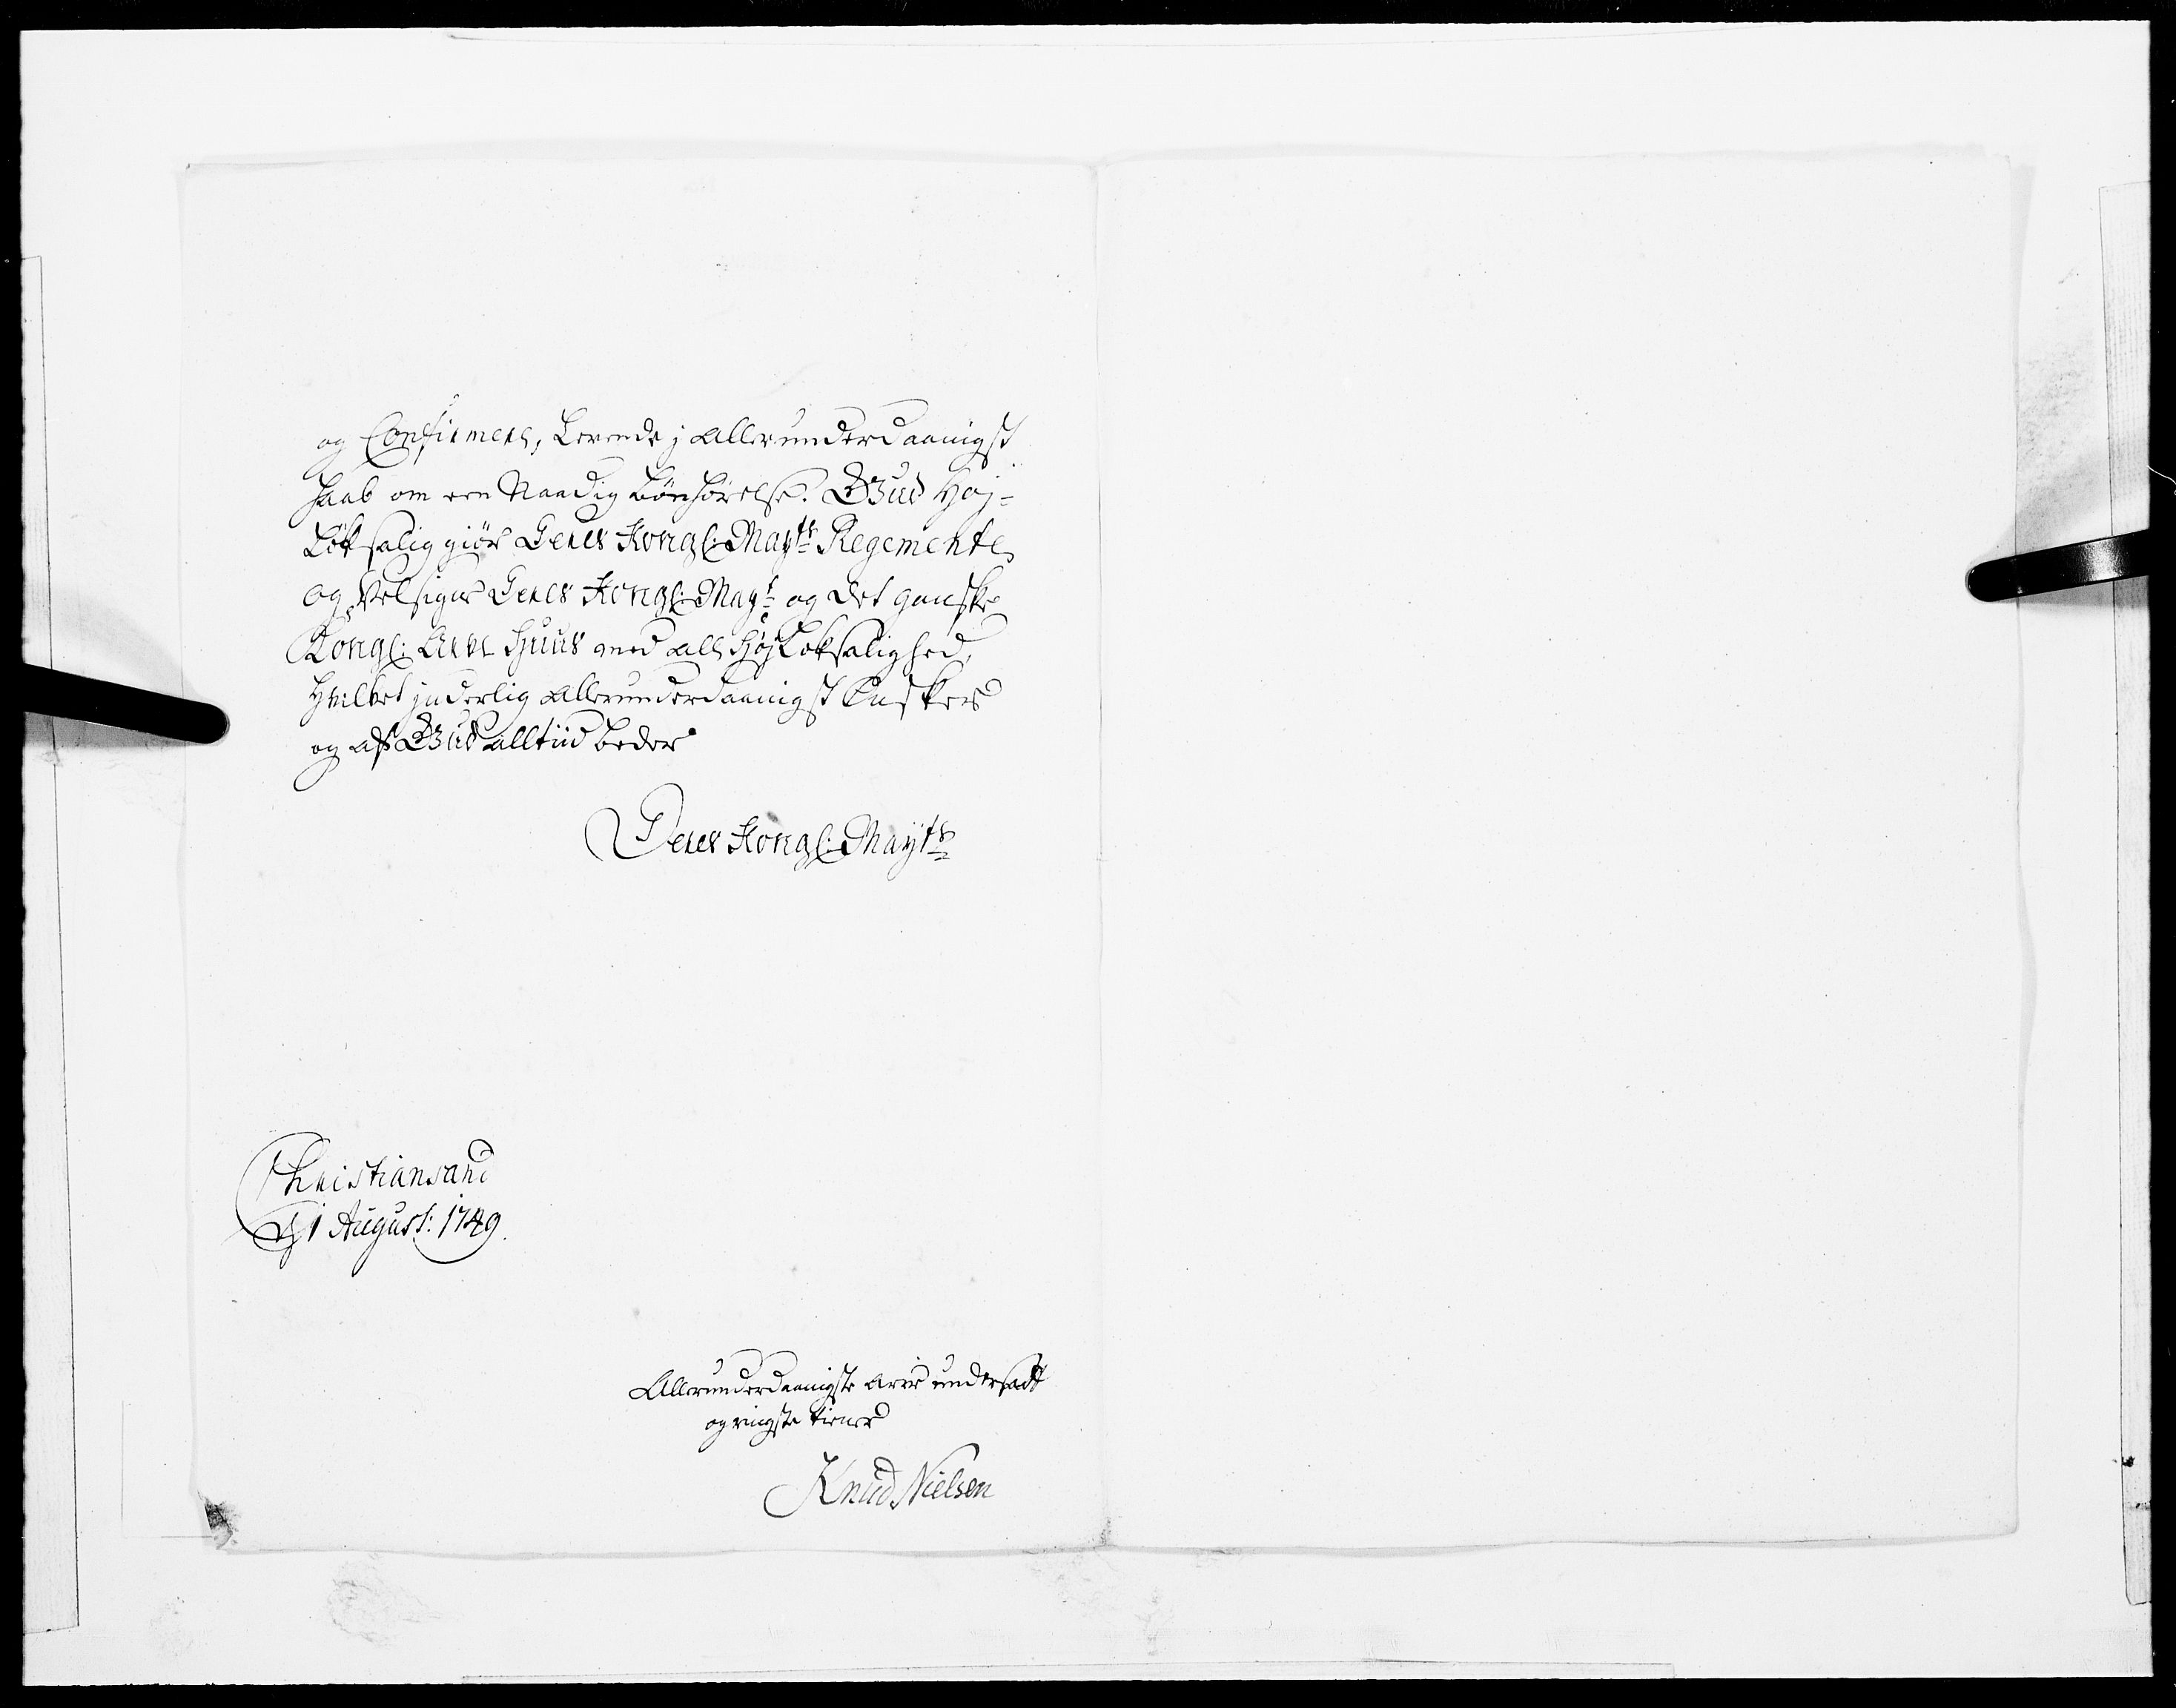 og Confirmere, Levende j allerunderdaanigst
haab om een Naadig bønhørelse. Gud Høj-
Løksalig giør Deres Kongl: Mayts Regemente
og Velsigne Deres Kongl: Mayt og det ganske
Kongl: Arve Huus med all Høj Løksalighed,
Hvilket inderlig allerunderdaanigst Ønsker
og af Gud alltiid beder
Deres Kongl: Maÿts
Christiansand
d 1 August: 1749.
Allerunderdaanigste arve undersaatt
og ringste tiener
Knud Nielsen